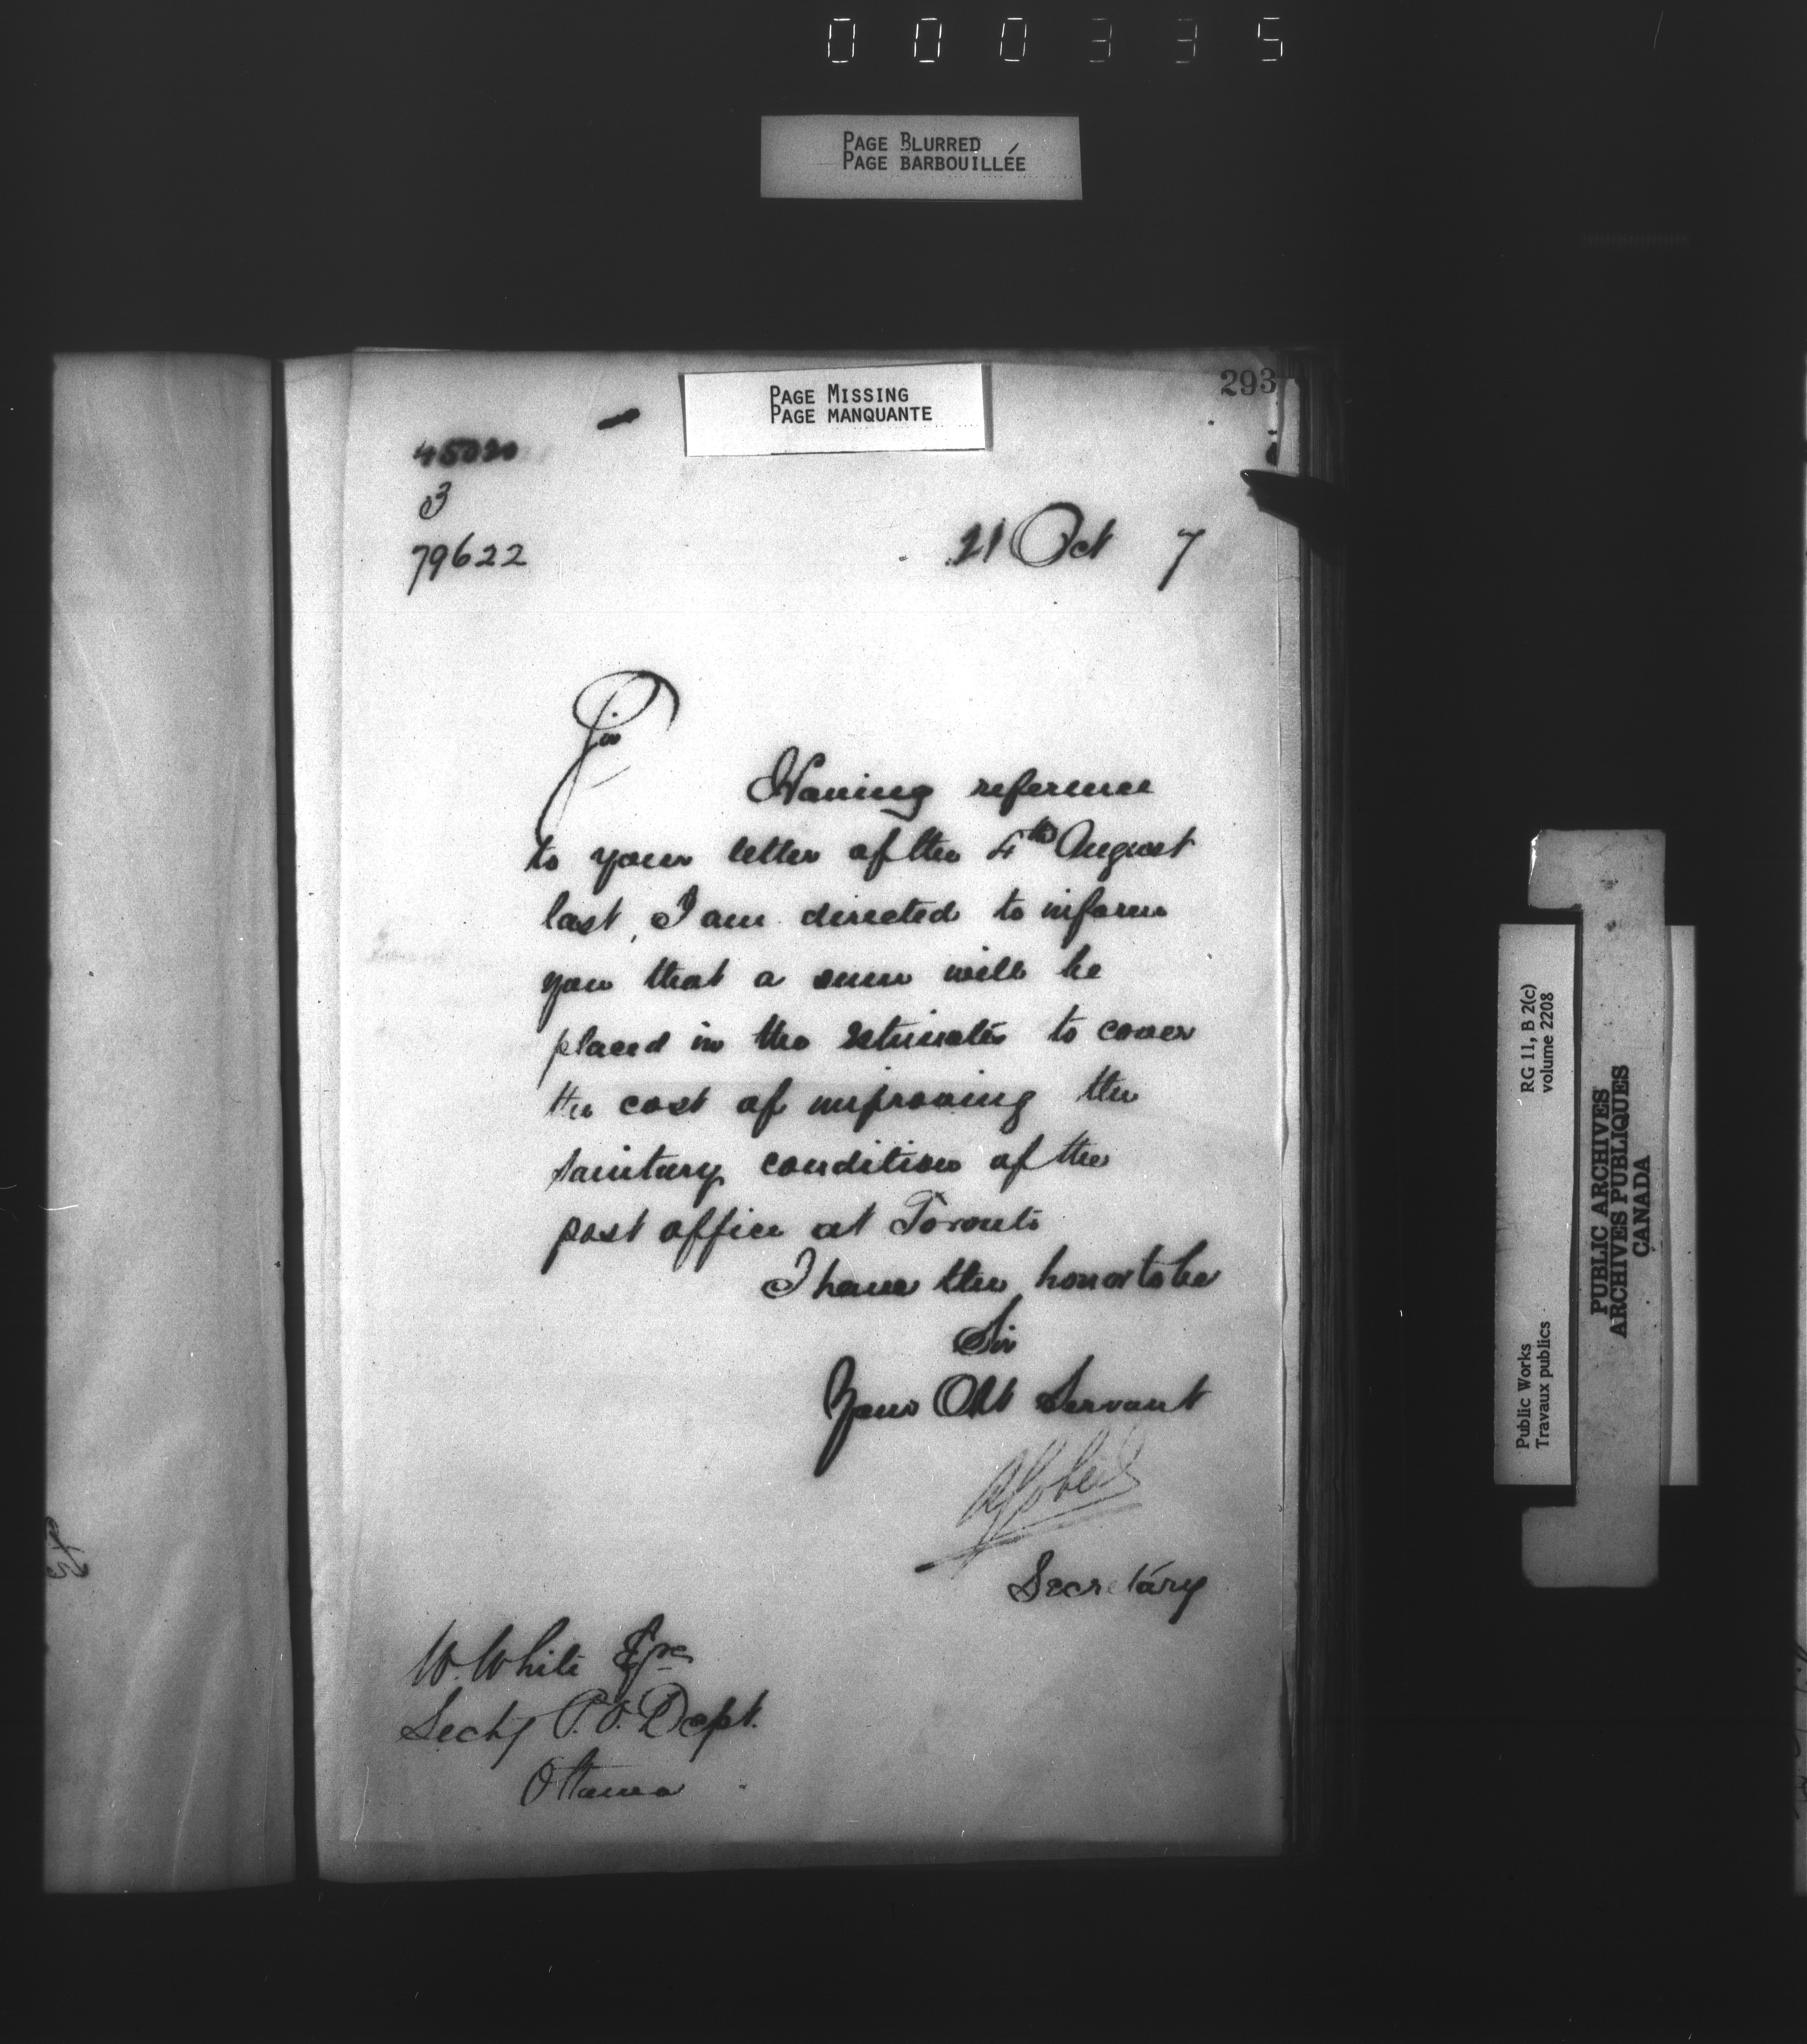 000335
PAGE BLURRED
PAGE BARBOUILLÉE
PAGE MISSING
PAGE MANQUANTE
293
45020
3
79622
21 Oct 7
Sir
Having reference
to your letter of the 4th August
last, I am directed to inform
you that a sum will be
placed in the Estimates to cover
the cost of improving the
sanitary condition of the
post office at Toronto
I have the honor to be
Sir
Your Obt Servant
Secretary
W. White Esqre
Secty P.O. Dept.
Ottawa
RG 11, B 2(c)
volume 2208
Public Works
Travaux publics
PUBLIC ARCHIVES
ARCHIVES PUBLIQUES
CANADA